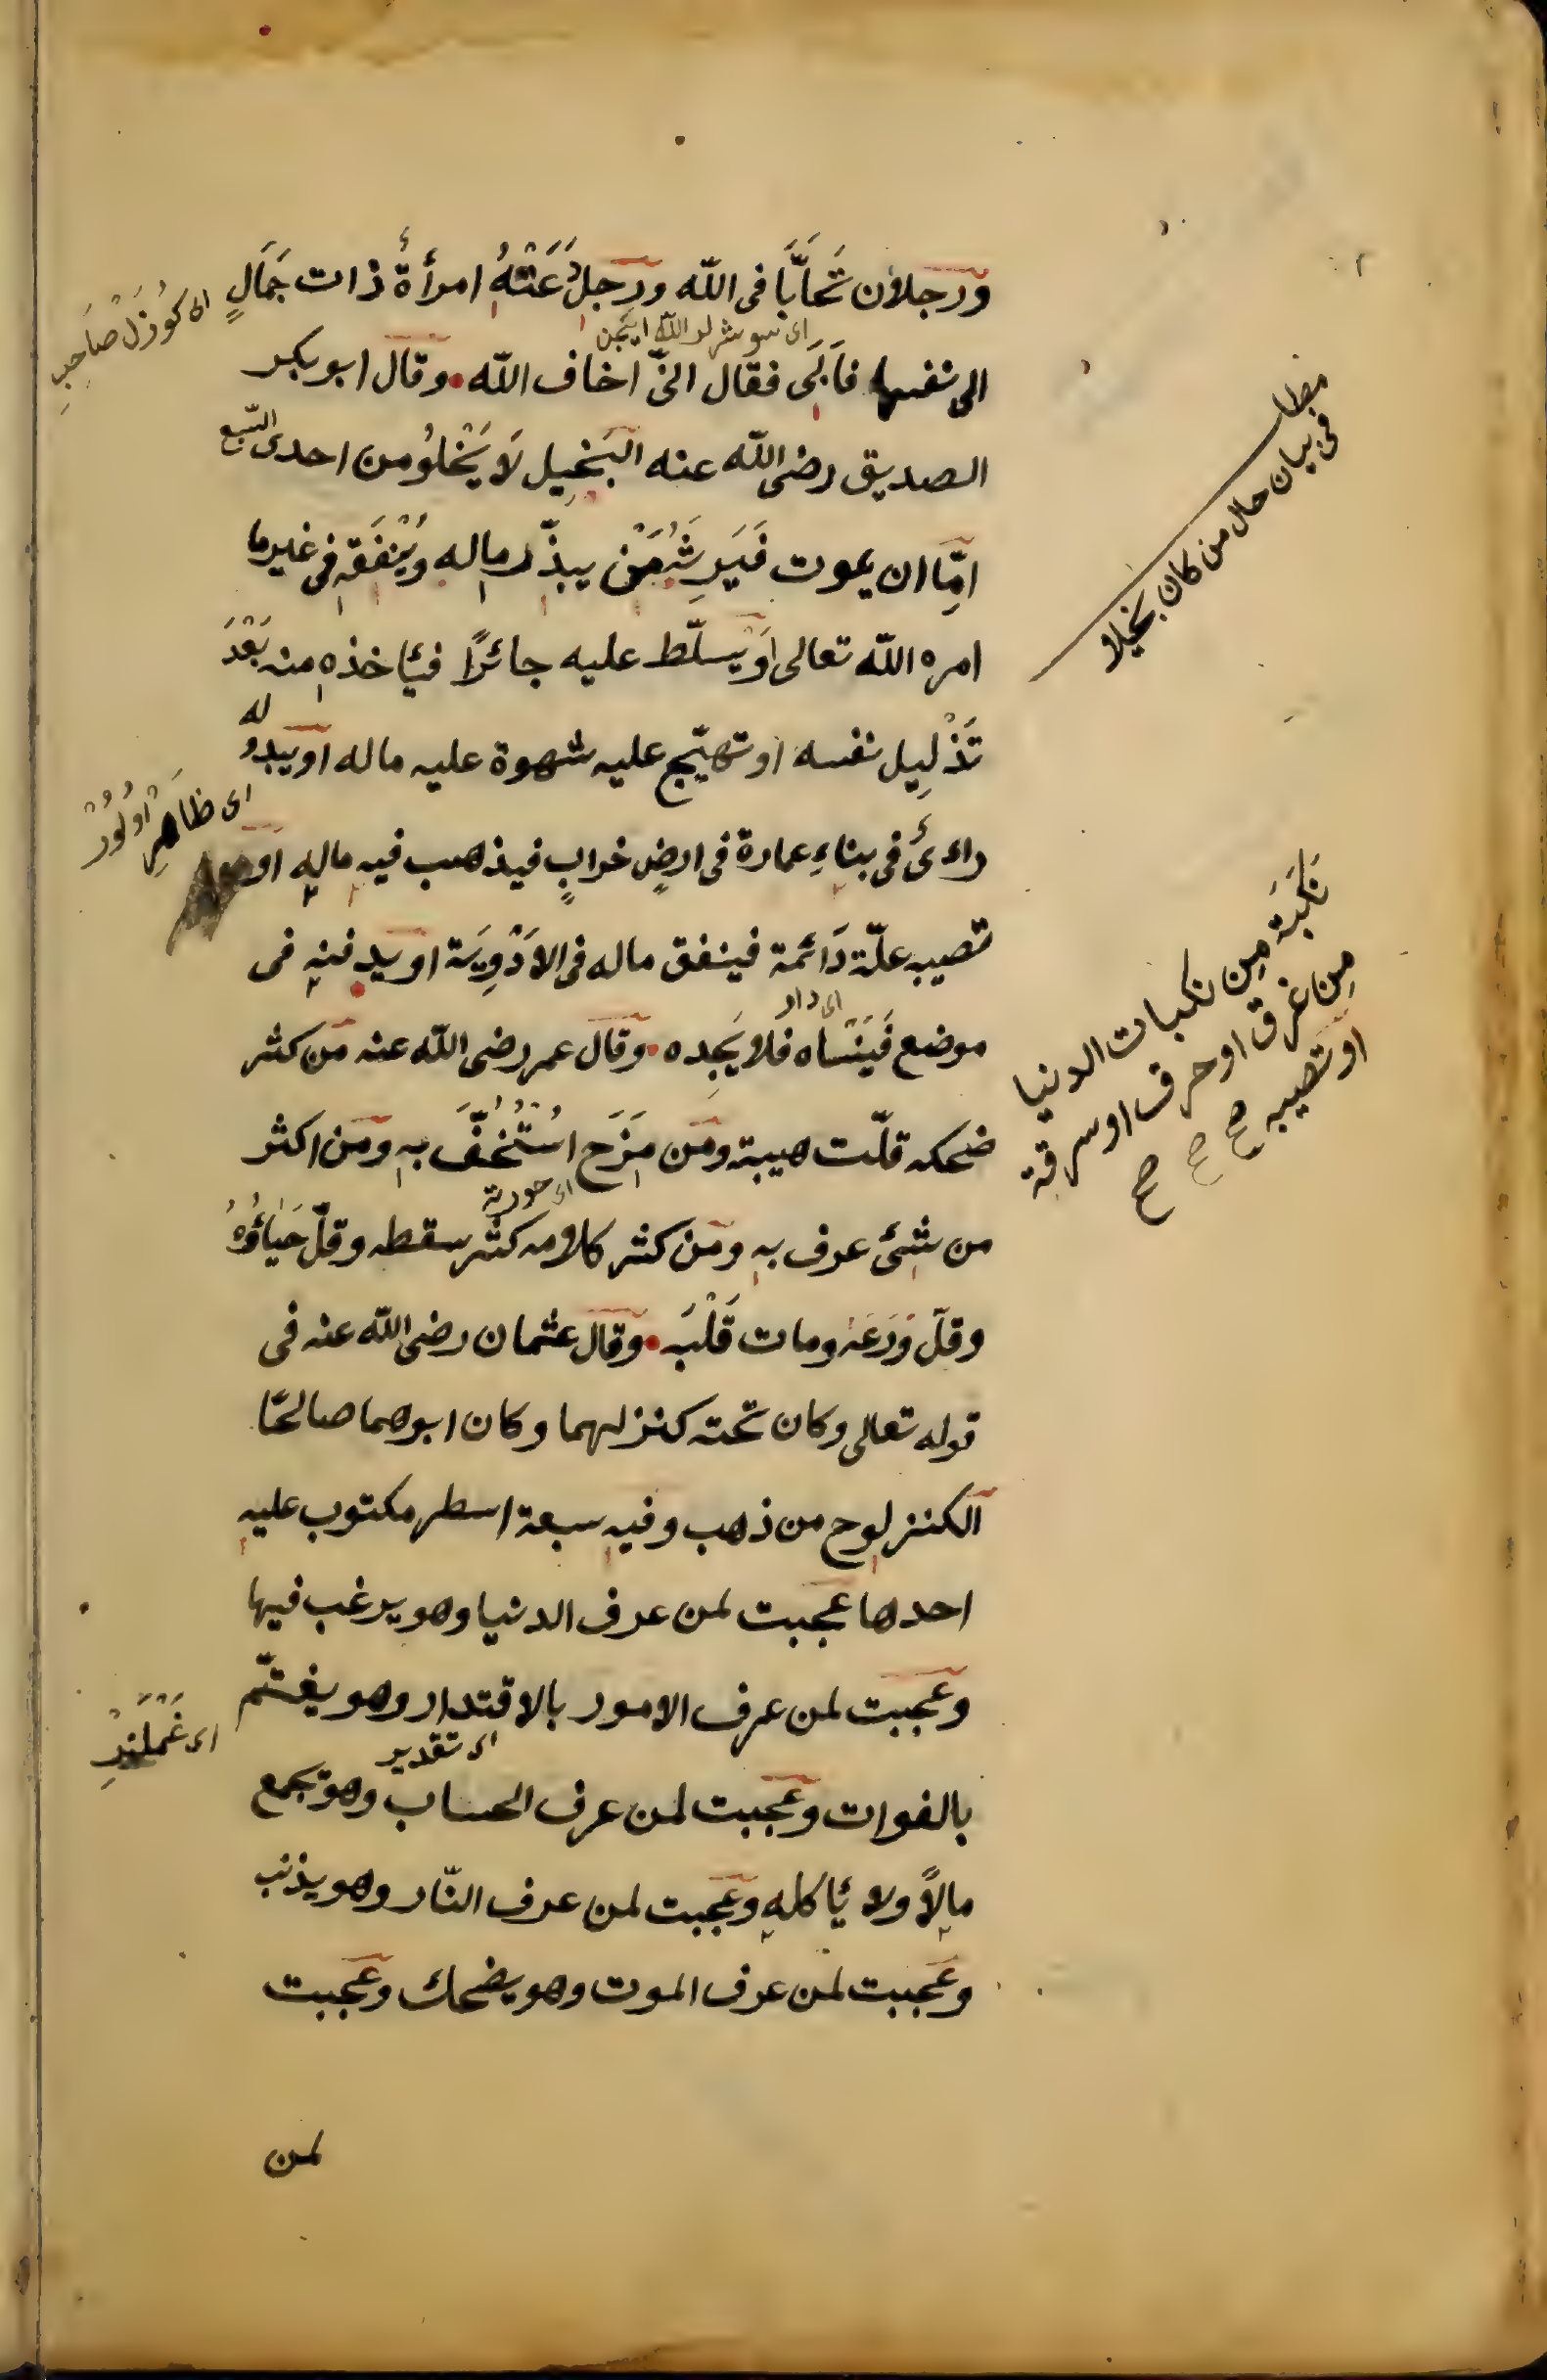 ورجلان تَحَابَّا فى اللّه ورجل دَعَتْهُ امرأةٌ ذات جَمَالٍ
الى نفسها فَاَبَى فقال انىّ اخاف اللّه وقال ابو بكر
الصديق رضى اللّه عنه البَخِيل لَا يَخْلُو من احدى السّبع
امّا ان يموت فَيَرِثُهُ مَنْ يبذّر ماله ويُنْفِقه فى غير ما
امره اللّه تعالى اَوْ يسلّط عليه جائرًا فيأخذه منه بَعْدَ
تَذْلِيل نفسه او تهيّج عليه شهوة عليه ماله او يبدو له
راءىٌ فى بناءِ عمارة فى ارضٍ خرابٍ فيذهب فيه ماله او
تصيبه علّة دَائمة فينفق ماله فى الادْوِيَة او يدفنه فى
موضع فَيَنْسَاه فلا يَجِده وقال عمر رضى اللّه عنه مَن كثر
ضحكه قلّت هيبته ومَن مَزَح اسْتُخُفَّ به ومَن اكثر
من شئ عرف به ومَن كثر كلامه كثر سقطه وقلّ حَيَاؤُهُ
وقلّ وَرَعَه ومات قَلْبَه وقال عثمان رضى اللّه عنه فى
قوله تعالى وكان تحته كنز لهما وكان ابوهما صالحًا
الكنز لوح من ذهب وفيه سبعة اسطر مكتوب عليه
احدها عجبت لمن عرف الدنيا وهو يرغب فيها
وعجبت لمن عرف الامور بالاقتدار وهو يغتمّ
بالفوات وعجبت لمن عرف الحساب وهو يجمع
مالًا ولا يأكله وعجبت لمن عرف النّار وهو يذنب
وعجبت لمن عرف الموت وهو يضحك وعجبت
لمن
اى كُوزَلْ صَاحِبِ
اى ظَاهِرْ اُولُورْ
اى دار
اى تقدير
اى غَمْلَنِرْ
مطلب
فى بيان حال من كان بخيلا
نَكْبَة مِن نكبات الدنيا
مِن غرق او حرق او سرقة
او تصيبه صح صح
صح